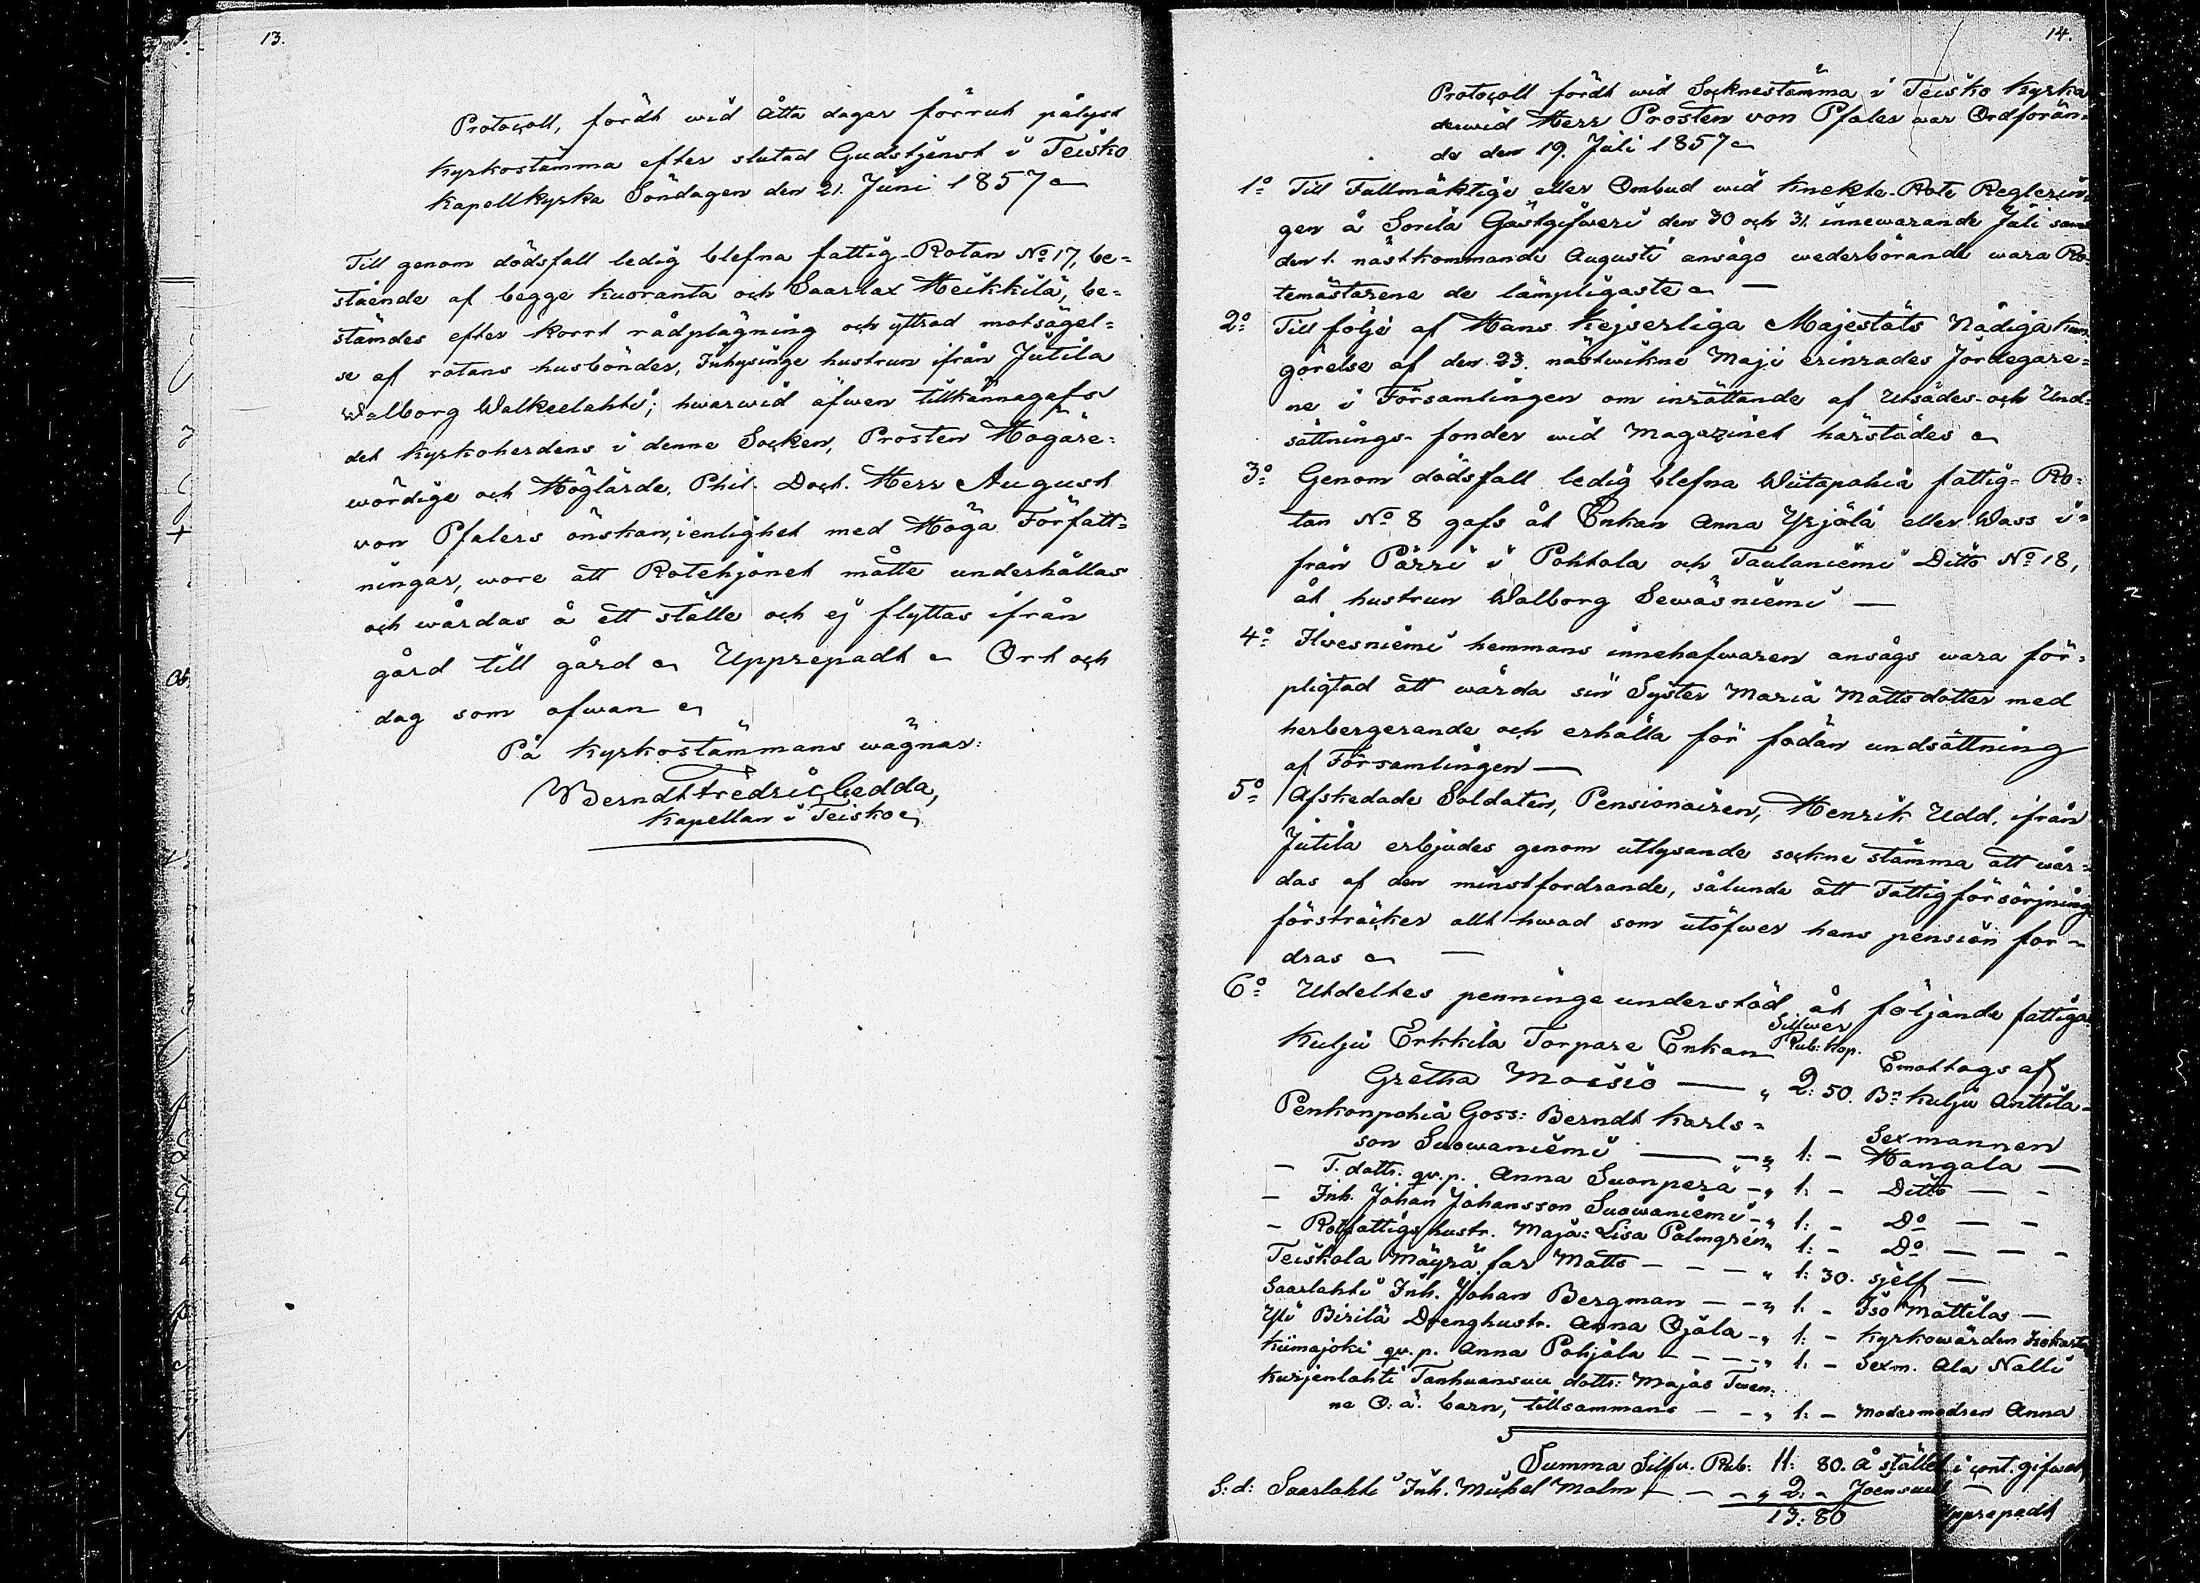 13.
Protocoll, fördt wid åtta dagar förrut pålyst
Kyrkostämma efter slutad Gudstjenst i Teisko
Kapellkyrka Söndagen den 21. Juni 1857
Till genom dödsfall ledig blefna fattig-Rotan No 17, be=
stående af begge Kuoranta och Saarlax Heikkilä, be=
stämdes efter korrt rådplägning och yttrad motsägel=
se af rotans husbönder, Inhysinge hustrun ifrån Jutila
Walborg Walkeelahti; hwarwid äfwen tillkännagafs
det Kyrkoherdens i denne Socken, Prosten Högäre=
wördige och Höglärde, Phil. Doct. Herr August
von Pfalers önskan, ienlighet med Höga Författ=
ningar, wore att Rotehjonet måtte underhållas
och wårdas å ett ställe och ej flyttas ifrån
gård till gård Upprepadt Ort och
dag som ofwan
På Kyrkostämmans wägnar:
Berndt Fredric Gedda,
Kapellan i Teisko
14.
Protocoll fördt wid Socknestämma i Teisko Kyrka
derwid Herr Prosten von Pfaler war Ordföran=
de den 19. Juli 1857
1o Till Fullmäktige eller Ombud wid Knekte-Rote Reglerin=
gen å Sorila Gästgifweri den 30 och 31. innewarande Juli samt
den 1. nästkommande Augusti ansågo wederbörande wara Ro=
temästarene de lämpligaste —
2o Till följe af Hans Kejserliga Majestäts Nådiga Kun=
görelse af den 23. nästwikne Maji erinrades Jordegare=
ne i Församlingen om inrättande af Utsädes- och Und=
sättnings- fonder wid Magazinet härstädes
3o Genom dödsfall ledig blefna Wiitapohia fattig- Ro=
tan No 8 gafs åt Enkan Anna Yrjölä eller Wass i=
från Pärri i Pohtola och Taulaniemi Ditto No 18,
åt hustrun Walborg Sewäsniemi —
4o Ilvesniemi hemmans innehafwaren ansågs wara för=
pligtad att wårda sin Syster Maria Mattsdotter med
herbergerande och erhålla för födan undsättning
af Församlingen —
5o Afskedade Soldaten, Pensionairen, Henrik Udd, ifrån
Jutila erbjudes genom utlysande sockne stämma att wår=
das af den minstfordrande, sålunde att Fattigförsörjning
försträcker allt hwad som utöfwer hans pension for=
dras —
6o Utdeltes penninge understöd åt följande fattiga
Silfwer
Kulju Erkkilä Torpare Enkan Rub: Kop. Emottogs af
Gretha Moisio — „ 2: 50. Bn Kulju Anttila -
Penkonpohia Goss: Berndt Karls= Sexmannen
son Suowaniemi — „ 1: - Hangala —
- T. dottr. qv.p. Anna Suonperä - „ 1: - Ditto — -
- Inh. Johan Johansson Suowaniemi - „ 1: - Do — -
- Rotfattigs hustr. Maja-Lisa Palmgren „ 1: - Do — — -
Teiskola Mäyrä far Matts - - - „ 1: 30. sjelf —
Saarlahti Inh. Johan Bergman - - „ 1. - Iso Mattilas —
Yli Birilä Drenghustr. Anna Ojala - „ 1: - Kyrkowärden
Kiimajoki qv.p. Anna Pohjola - - - - „ 1: - Sexm. Ala Nalli
Kurjenlahti Tanhuansuu dottr: Majas Twen=
ne O: ä. barn, tillsammans - - „ 1: - Modermodren Anna
Summa Silfv. Rub: 11: 80. å stället i cont. gifwet
S: d: Saarlahti Inh. Mickel Malm - - - „ 2: - Joensuu —
13: 80 Upprepadt